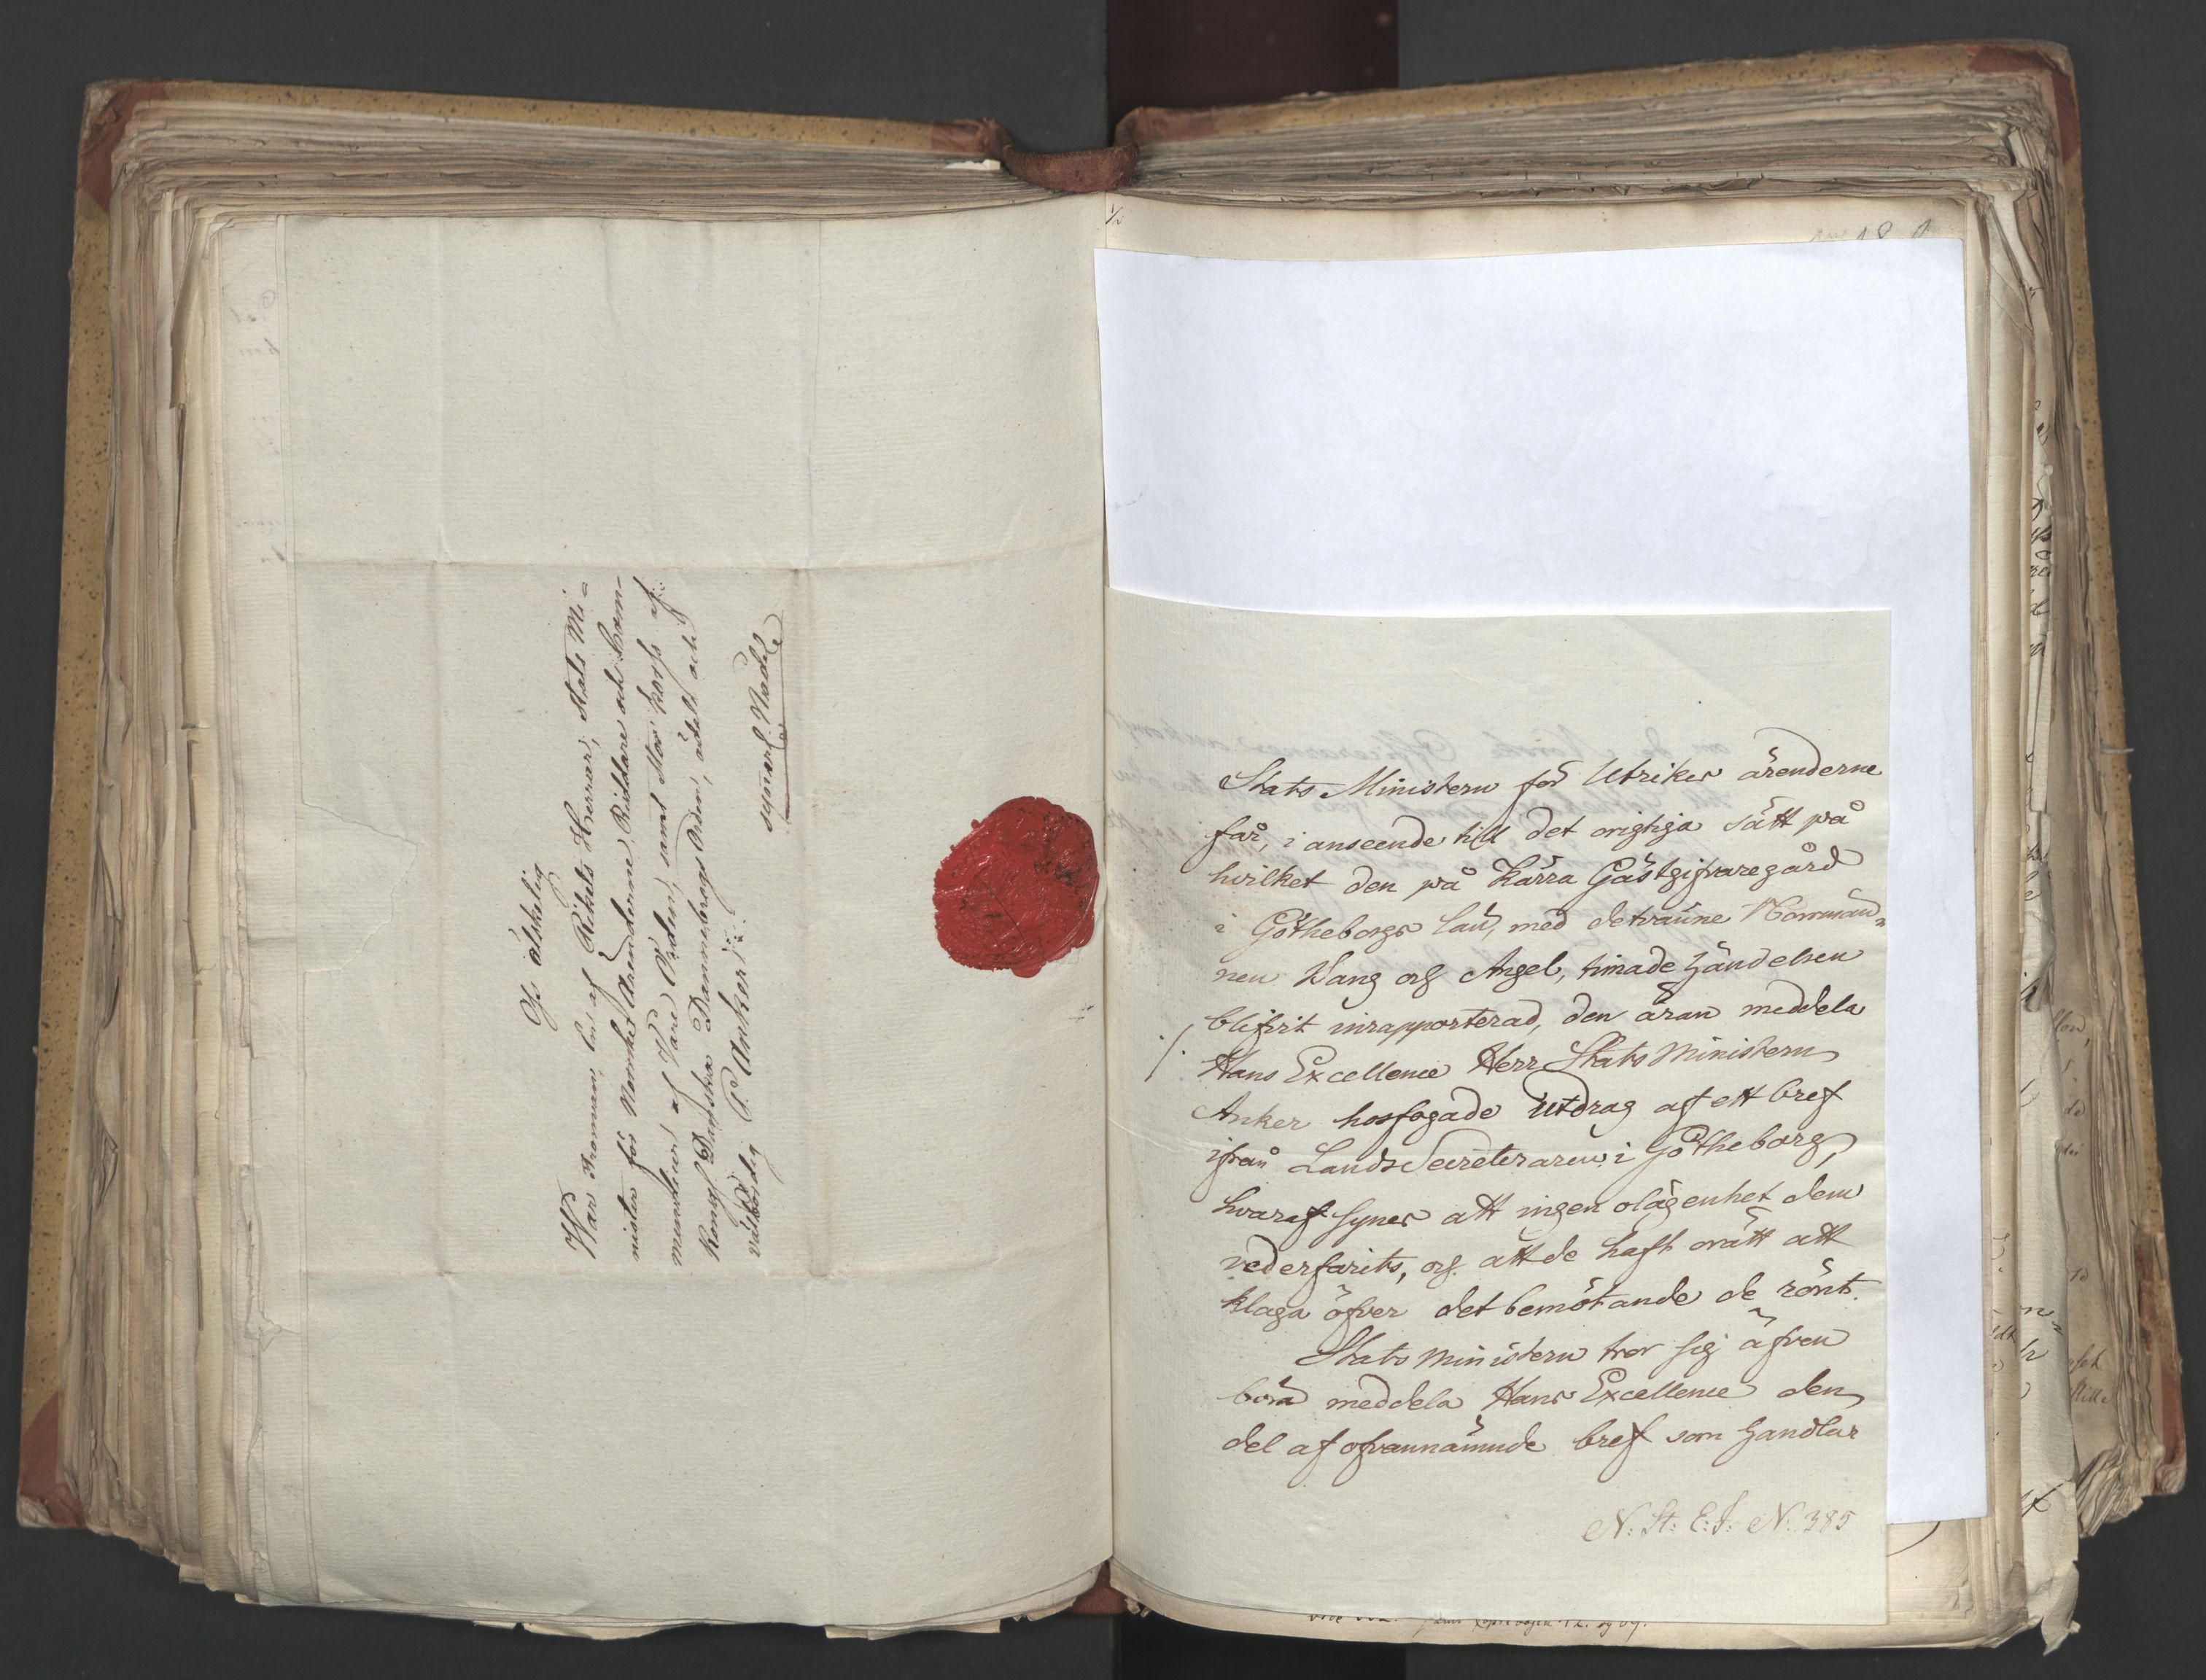 Os älskelig
War Troman, En af Rikets Herrar, Stats Mi-
nister för Norrske Ärenderne, Riddare och Com-
mendeur af Våre Orden, samt Stor Korss af
Kongl. Danska Dannebrogs Orden, ädel och
välbördig P. Anker
synnerl: Nåde
Stats Ministern för Utrikes ärenderne
får, i anseende till det origtiga sätt på
hvilket den på Kärra Gästgifvaregård
i Götheborgs län, med de tvänne Norrmän-
nen Wang och Angel, timade händelsen
blifvit inrapporterad, den äran meddela
Hans Excellence Herr Stats Ministern
Anker hosfogade Utdrag af ett bref
ifrån Lands Secreteraren i Götheborg,
hvaraf synes att ingen olägenhet dem
vederfarits, och att de haft orätt att
klaga öfver det bemötande de rönt.
Stats Ministern tror sig äfven
böra meddela Hans Excellence den
del af ofvannämnde bref som handlar
N: St: E: J: N: 385